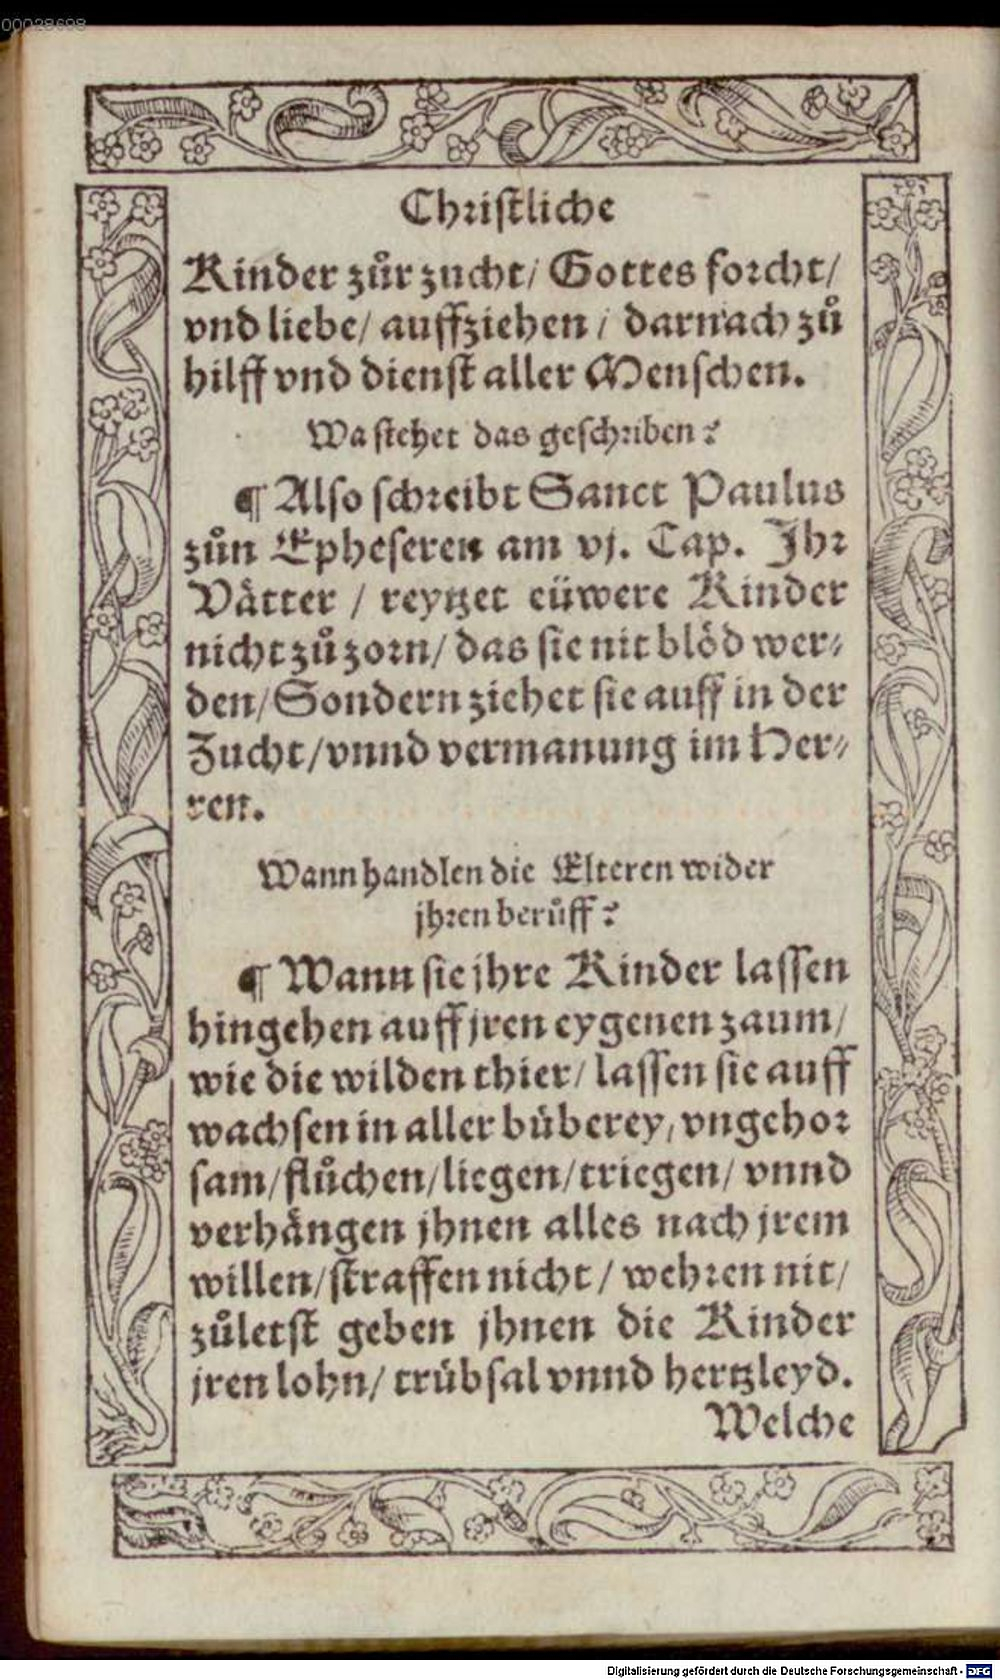 00028698
Christliche
Kinder zůr zucht/ Gottes forcht/
vnd liebe/ auffziehen / darnach zů
hilff vnd dienst aller Menschen.
Wa stehet das geschriben?
¶ Also schreibt Sanct Paulus
zůn Epheseren am vj. Cap. Ihr
Vätter / reytzet eüwere Kinder
nicht zů zorn/ das sie nit blöd wer⸗
den/ Sondern ziehet sie auff in der
Zucht/ vnnd vermanung im Her⸗
ren.
Wann handlen die Elteren wider
jhren berůff?
¶ Wann sie jhre Kinder lassen
hingehen auff jren eygenen zaum/
wie die wilden thier/ lassen sie auff
wachsen in aller büberey, vngehor
sam/ flůchen/ liegen/ triegen/ vnnd
verhängen jhnen alles nach jrem
willen/ straffen nicht / wehren nit/
zůletst geben jhnen die Kinder
jren lohn/ trübsal vnnd hertzleyd.
Welche
Digitalisierung gefördert durch die Deutsche Forschungsgemeinschaft - DFG